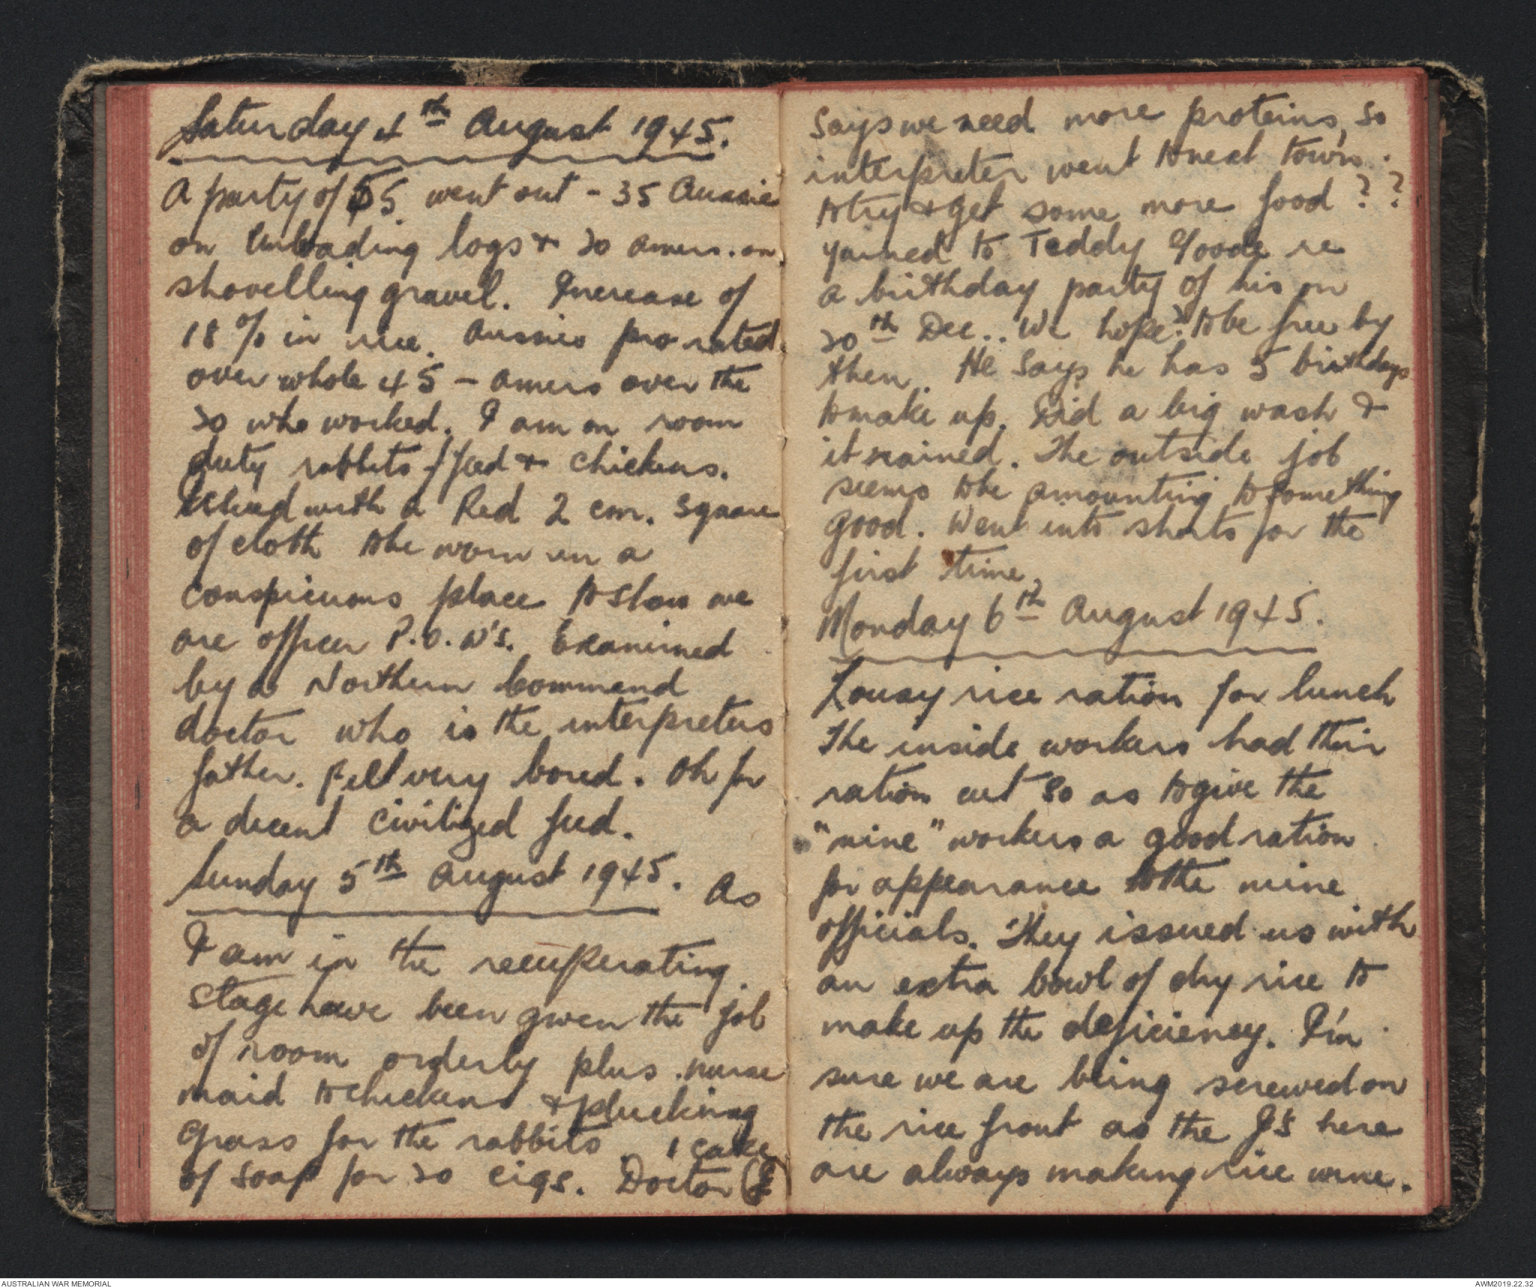 Saturday 4th August 1945.
A party of 55 went out - 35 Aussies
on unloading logs & 20 amers. on
shovelling gravel. Increase of
18 % in rice. Aussies pro rated
over whole 45 - amers over the
20 who worked. I am on room
duty rabbits / feed & chickens.
Issued with a Red 2 cm. square
of cloth to be worn in a
conspicuous place to show we
are officer P.O.W's. Examined
by a Northern Command
doctor who is the interpreters
father. Felt very bored. Oh for
a decent civilized feed.
Sunday 5th August 1945. As
I am in the recuperating
stage have been given the job
of room orderly plus nurse
maid to chickens & plucking
grass for the rabbits. 1 cake
of soap for 20 cigs. Doctor (J)
says we need more proteins, so
interpreter went to next town
to try & get some more food ? ?
yarned to Teddy Goode re
a birthday party of his on
20th Dec.. We hope? to be free by
then. He says he has 5 birthdays
to make up. Did a big wash &
it rained. The outside job
seems to be amounting to something
good. Went into shorts for the
first time.
Monday 6th August 1945.
Lousy rice ration for lunch
The inside workers had their
ration cut so as to give the
"mine" workers a good ration
for appearance to the mine
officials. They issued us with
an extra bowl of dry rice to
make up the deficiency. I'm
sure we are being screwed on
the rice front as the J's here
are always making rice wine.
AUSTRALIAN WAR MEMORIAL
AWM2019.22.32